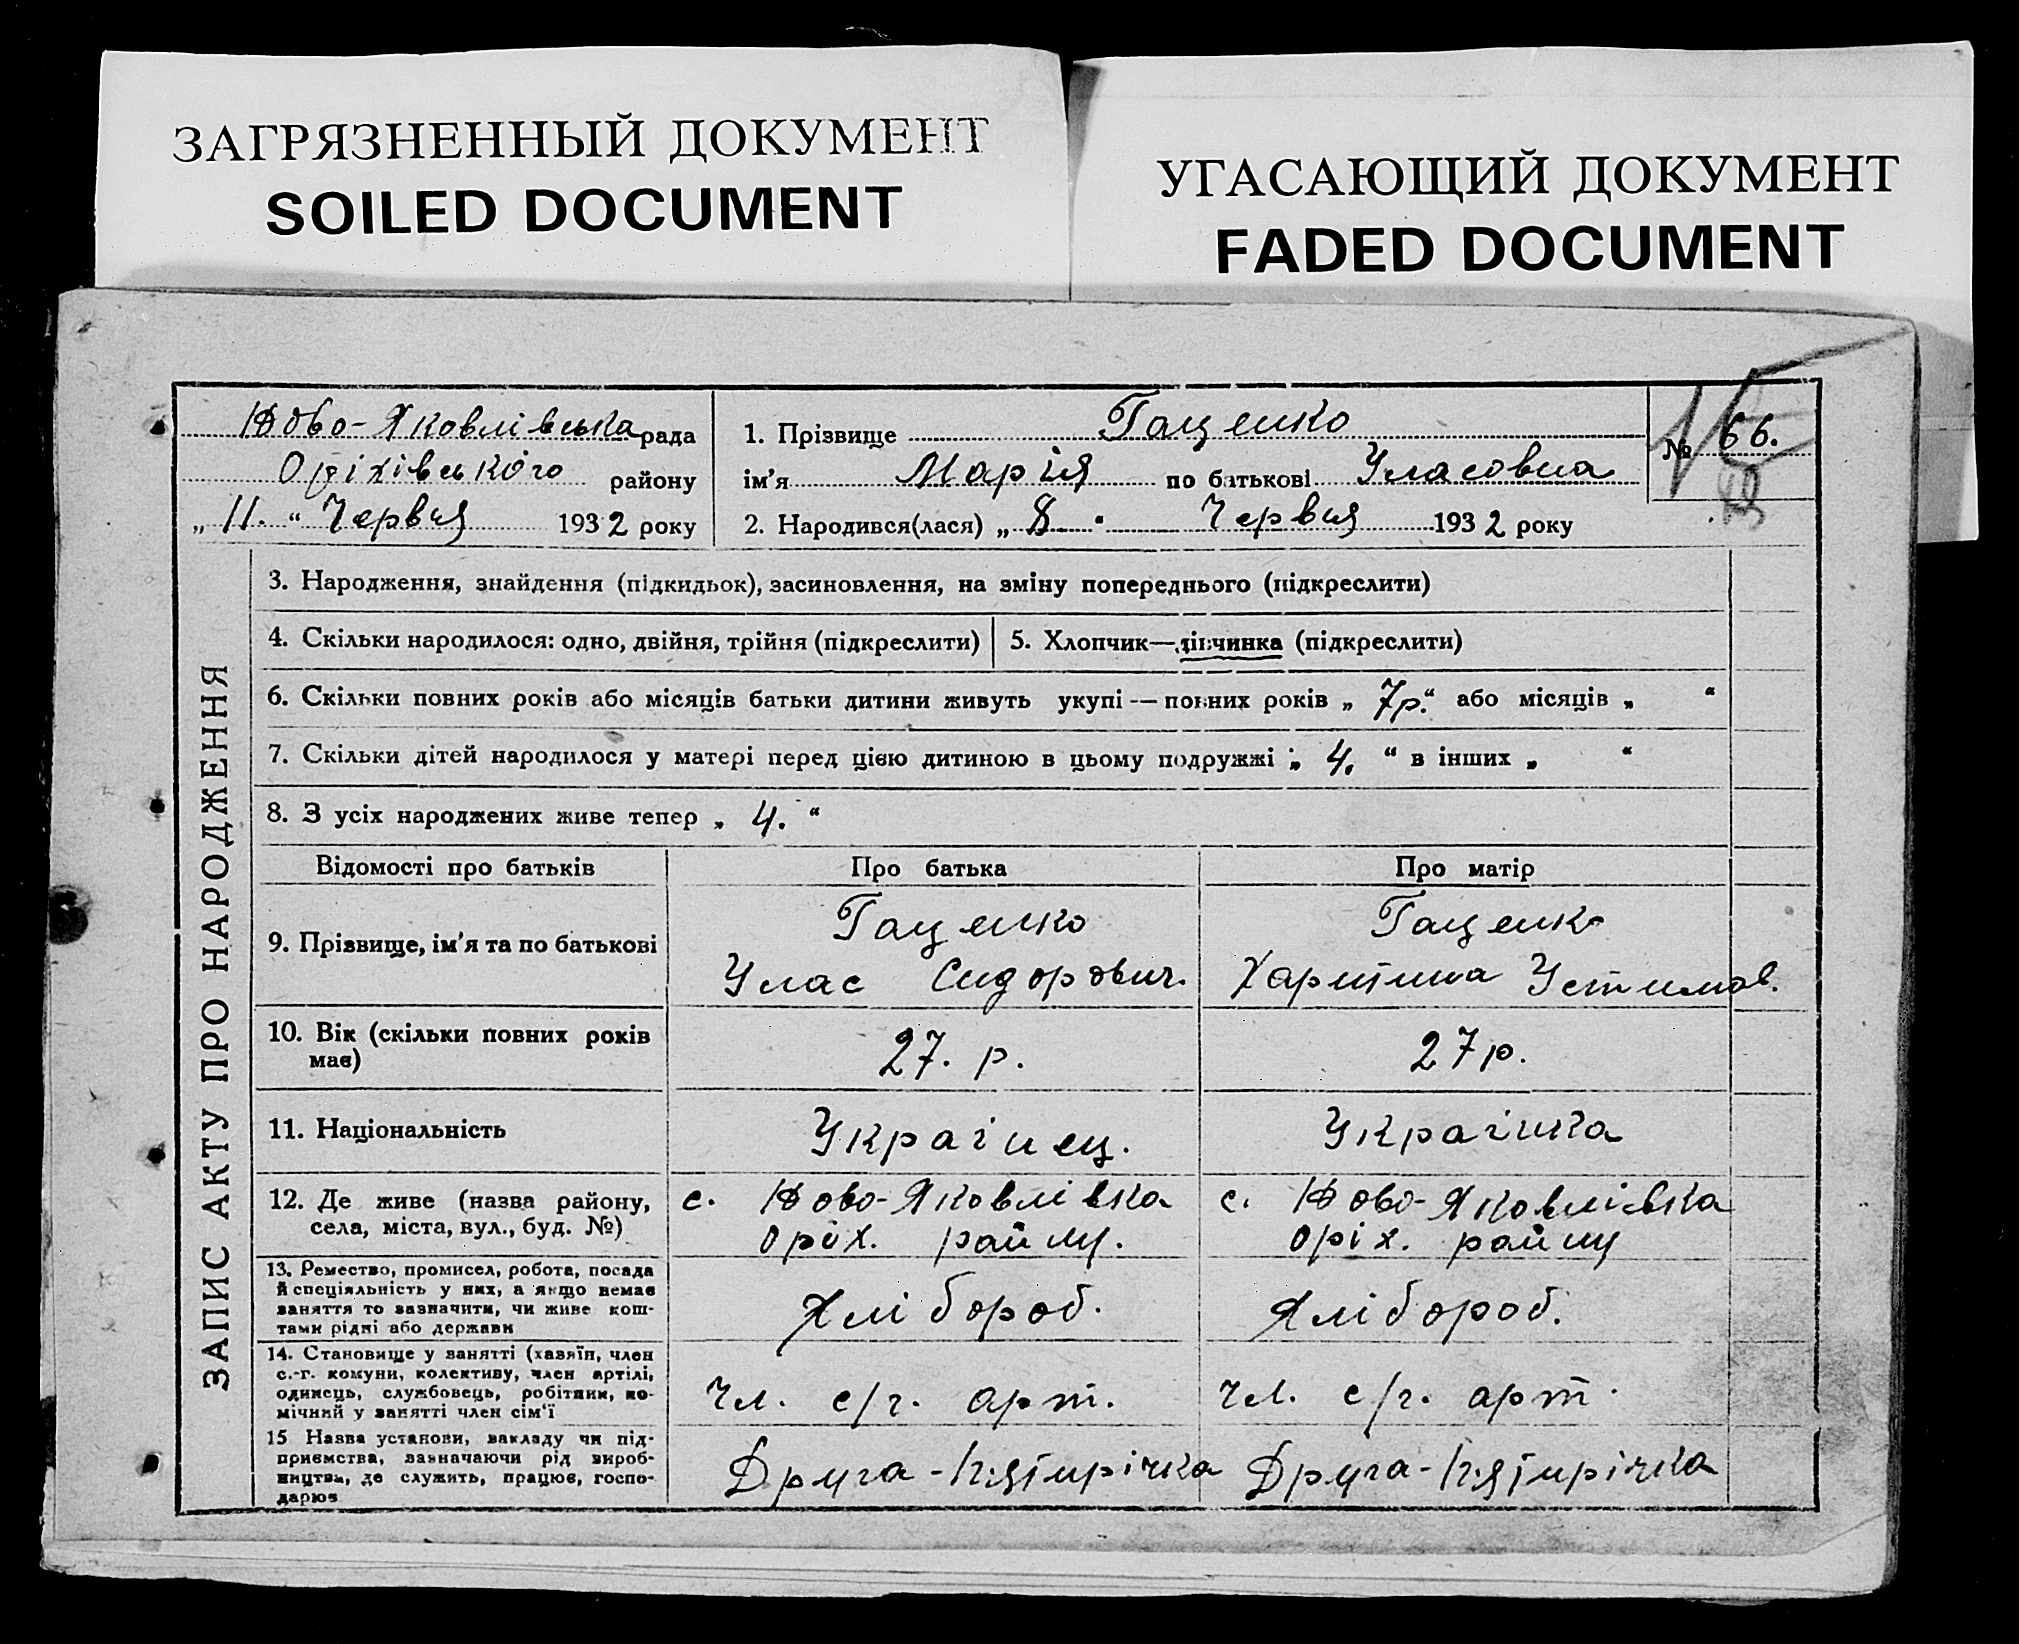 ЗАГРЯЗНЕННЫЙ ДОКУМЕНТ
SOILED DOCUMENT
УГАСАЮЩИЙ ДОКУМЕНТ
FADED DOCUMENT
Ново-Яковлівська рада
Оріхівського району
„ 11. “ Червня 1932 року
1. Прізвище Гаценко
ім'я Марія по батькові Уласовна
2. Народився(лася) „ 8 “ Червня 1932 року
№ 66.
ЗАПИС АКТУ ПРО НАРОДЖЕННЯ
3. Народження, знайдення (підкидьок), засиновлення, на зміну попереднього (підкреслити)
4. Скільки народилося: одно, двійня, трійня (підкреслити)
5. Хлопчик—дівчинка (підкреслити)
6. Скільки повних років або місяців батьки дитини живуть укупі — повних років „ 7р. “ або місяців „ “
7. Скільки дітей народилося у матері перед цією дитиною в цьому подружжі „ 4. “ в інших „ “
8. З усіх народжених живе тепер „ 4. “
Відомості про батьків
Про батька
Про матір
9. Прізвище, ім'я та по батькові
Гаценко
Улас Сидорович.
Гаценко
Харитина Устимов.
10. Вік (скільки повних років
має)
27. р.
27р.
11. Національність
Українец.
Українка
12. Де живе (назва району,
села, міста, вул., буд. №)
с. Ново-Яковлівка
Оріх. району.
с. Ново-Яковлівка
Оріх. району
13. Ремество, промисел, робота, посада
й спеціяльність у них, а якщо немає
заняття то зазначити, чи живе кош-
тами рідні або держави
Хлібороб.
Хлібороб.
14. Становище у занятті (хазяїн, член
с.-г. комуни, колективу, член артілі,
одинець, службовець, робітник, по-
мічний у занятті член сім'ї
Чл. с/г. арт.
Чл. с/г. арт.
15 Назва установи, закладу чи під-
приємства, зазначаючи рід вироб-
ництва, де служить, працює, госпо-
дарює
Друга-Пятирічка
Друга-Пятирічка